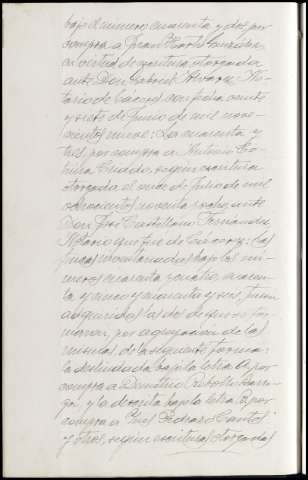 bajo el número cuarenta y dos, por
compra a Juan Martín González
en virtud de escritura otorgada
ante Don Gabriel Alvarez, No-
tario de Cáceres con fecha veinte
y siete de Junio de mil nove-
cientos nueve: La cuarenta y
tres, por compra a Antonio
Criado, según escritura
otorgada el once de Julio de mil
ochocientos noventa y ocho ante
Don José Castellano Fernández
Notario que fue de Cáceres y: las
fincas inventariadas bajo los nú-
meros cuarenta y cuatro, cuaren-
ta y cinco y cuarenta y seis, fueron
adquiridas las dos que se for-
maron, por agrupación de las
mismas de la siguiente forma:
la deslindada bajo la letra A, por
compra a Demetrio
y la descrita bajo la letra B, por
compra a Luis Pedrazo Santos
y otros, según escrituras otorgadas